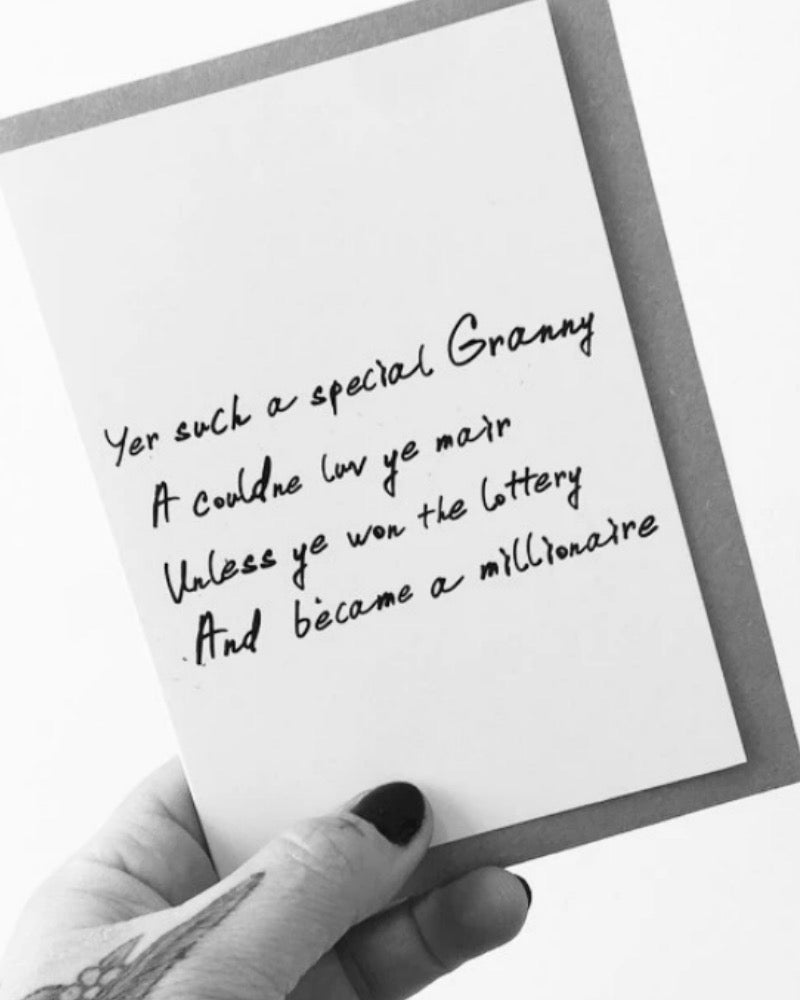 Yer such a special Granny
A couldne luv ye mair
Unless ye won the lottery
And became a millionaire